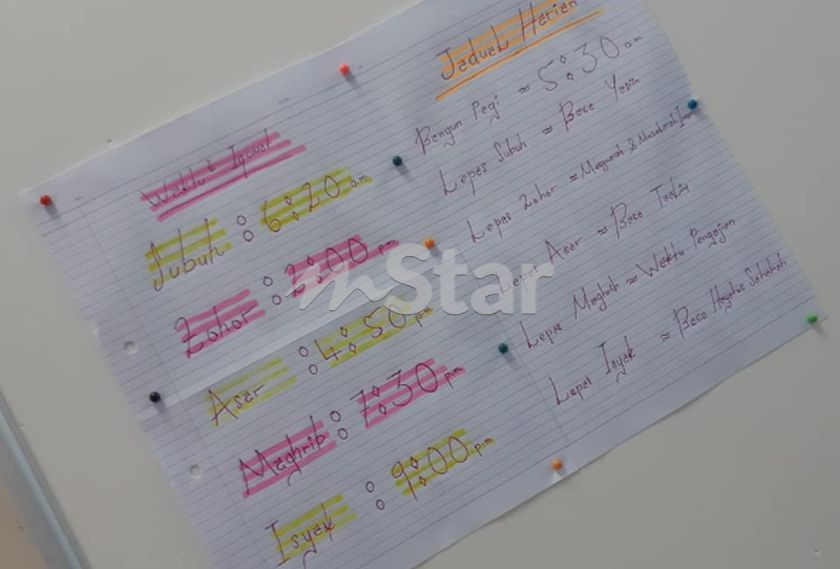 Waktu² Iqamat
Subuh : 6:20 a.m
Zohor : 2:00 p.m
Asar : 4:50 p.m
Maghrib : 7:30 p.m
Isyak : 9:00 p.m
Jaduah Harian
Bangun Pagi ≈ 5:30 a.m
Lepas Subuh ≈ Baca Yasin
Lepas Zohor ≈ &
Lepas Asar ≈ Baca
Lepas Maghrib ≈ Waktu Pengajian
Lepas Isyak ≈ Baca Hayatus Sahabah
mStar